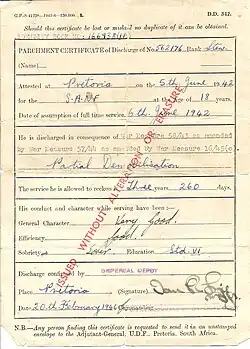 D.D. 342.
Should this certificate be lost or mislaid no duplicate of it can be obtained.
PARCHMENT CERTIFICATE of Discharge of No. 562176 Rank
(Name)
Attested at Pretoria on the 5th June 1942
for the S.A.A.F at the age of 18 years.
Date of assumption of full time service, 6th June 1942
He is discharged in consequence of War Measure 58/43 as amended
by War Measure 57/44 as amended by War Measure 16/45(c)
Partial Demobilisation
The service he is allowed to reckon is Three years 260 days.
His conduct and character while serving have been :—
General Character Very Good.
Efficiency Good.
Sobriety Sober. Education Std. VI
Discharge confirmed by DISPERSAL DEPOT
Place Pretoria (Signature)
Date 20th February 1946
ISSUED WITHOUT ALTERATION OR ERASURE
N.B.—Any person finding this certificate is requested to send it in an unstamped
envelope to the Adjutant-General, U.D.F., Pretoria, South Africa.